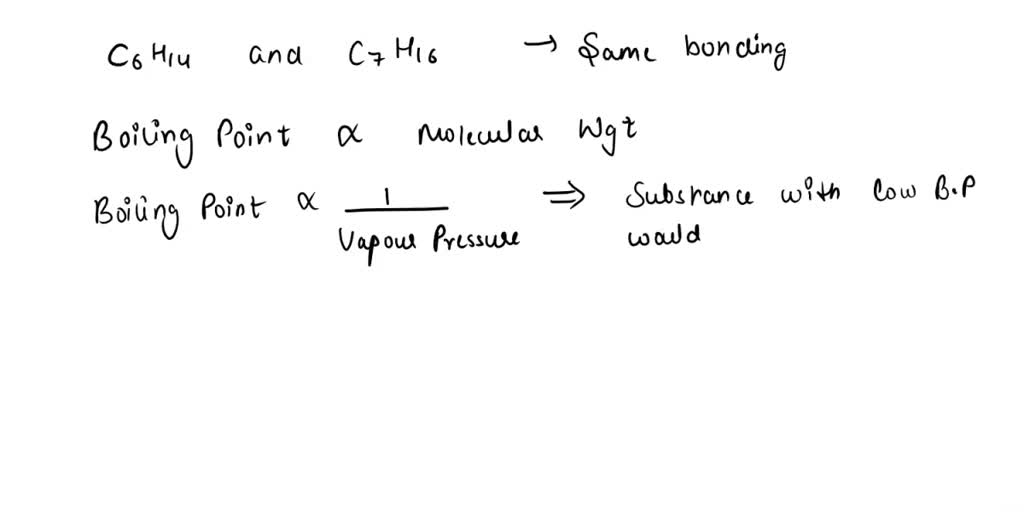 C6H14 and C7H16 → Same bonding
Boiling Point ∝ Molecular Wgt
Boiling Point ∝ 1 / Vapour Pressure ⇒ Substance with low B.P
would